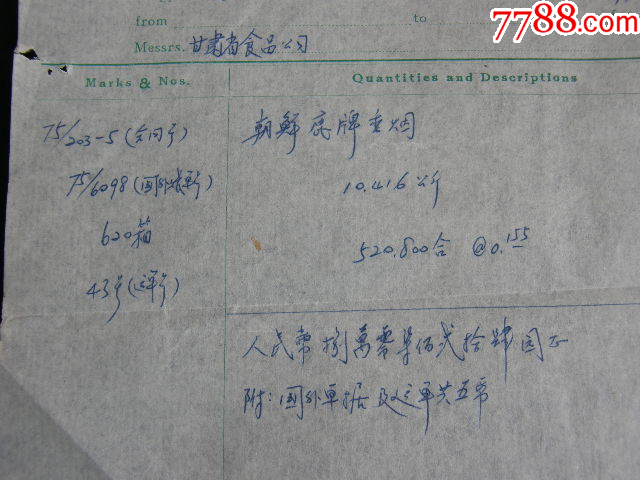 7788.com
from to
Messrs. 甘肃省食品公司
Marks & Nos. Quantities and Descriptions
75/203-5(合同号) 朝鲜 牌香烟
75/6098(国外账单号) 10.416公斤
620箱 520.800合 @0.155
43号(运单号)
人民币捌万零柒佰贰拾肆园正
附:国外单据及运单共五帋